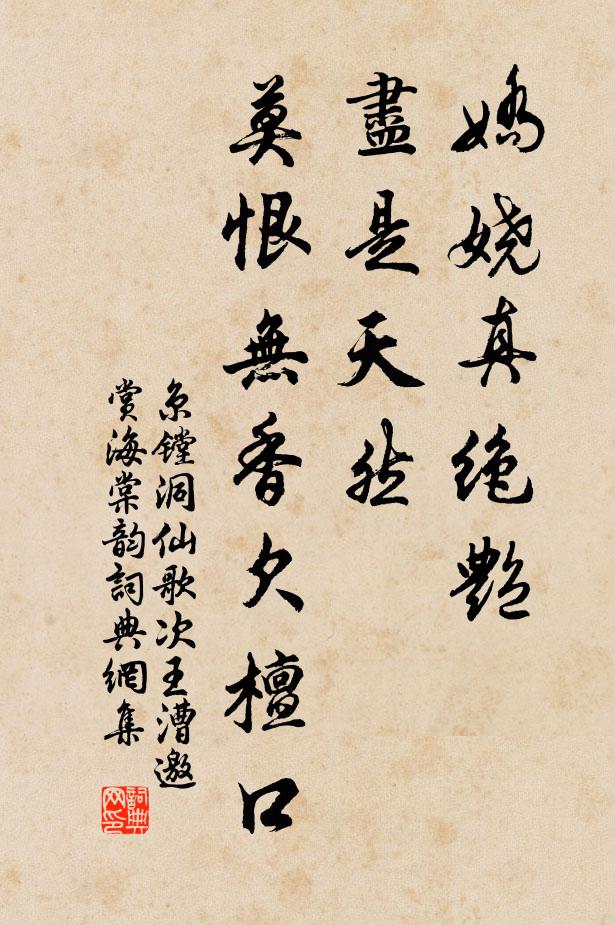 嬌嬈真絶艷
盡是天然
莫恨無香欠檀口
京鏜洞仙歌次王漕邀
賞海棠韵詞典網集
詞典
网印